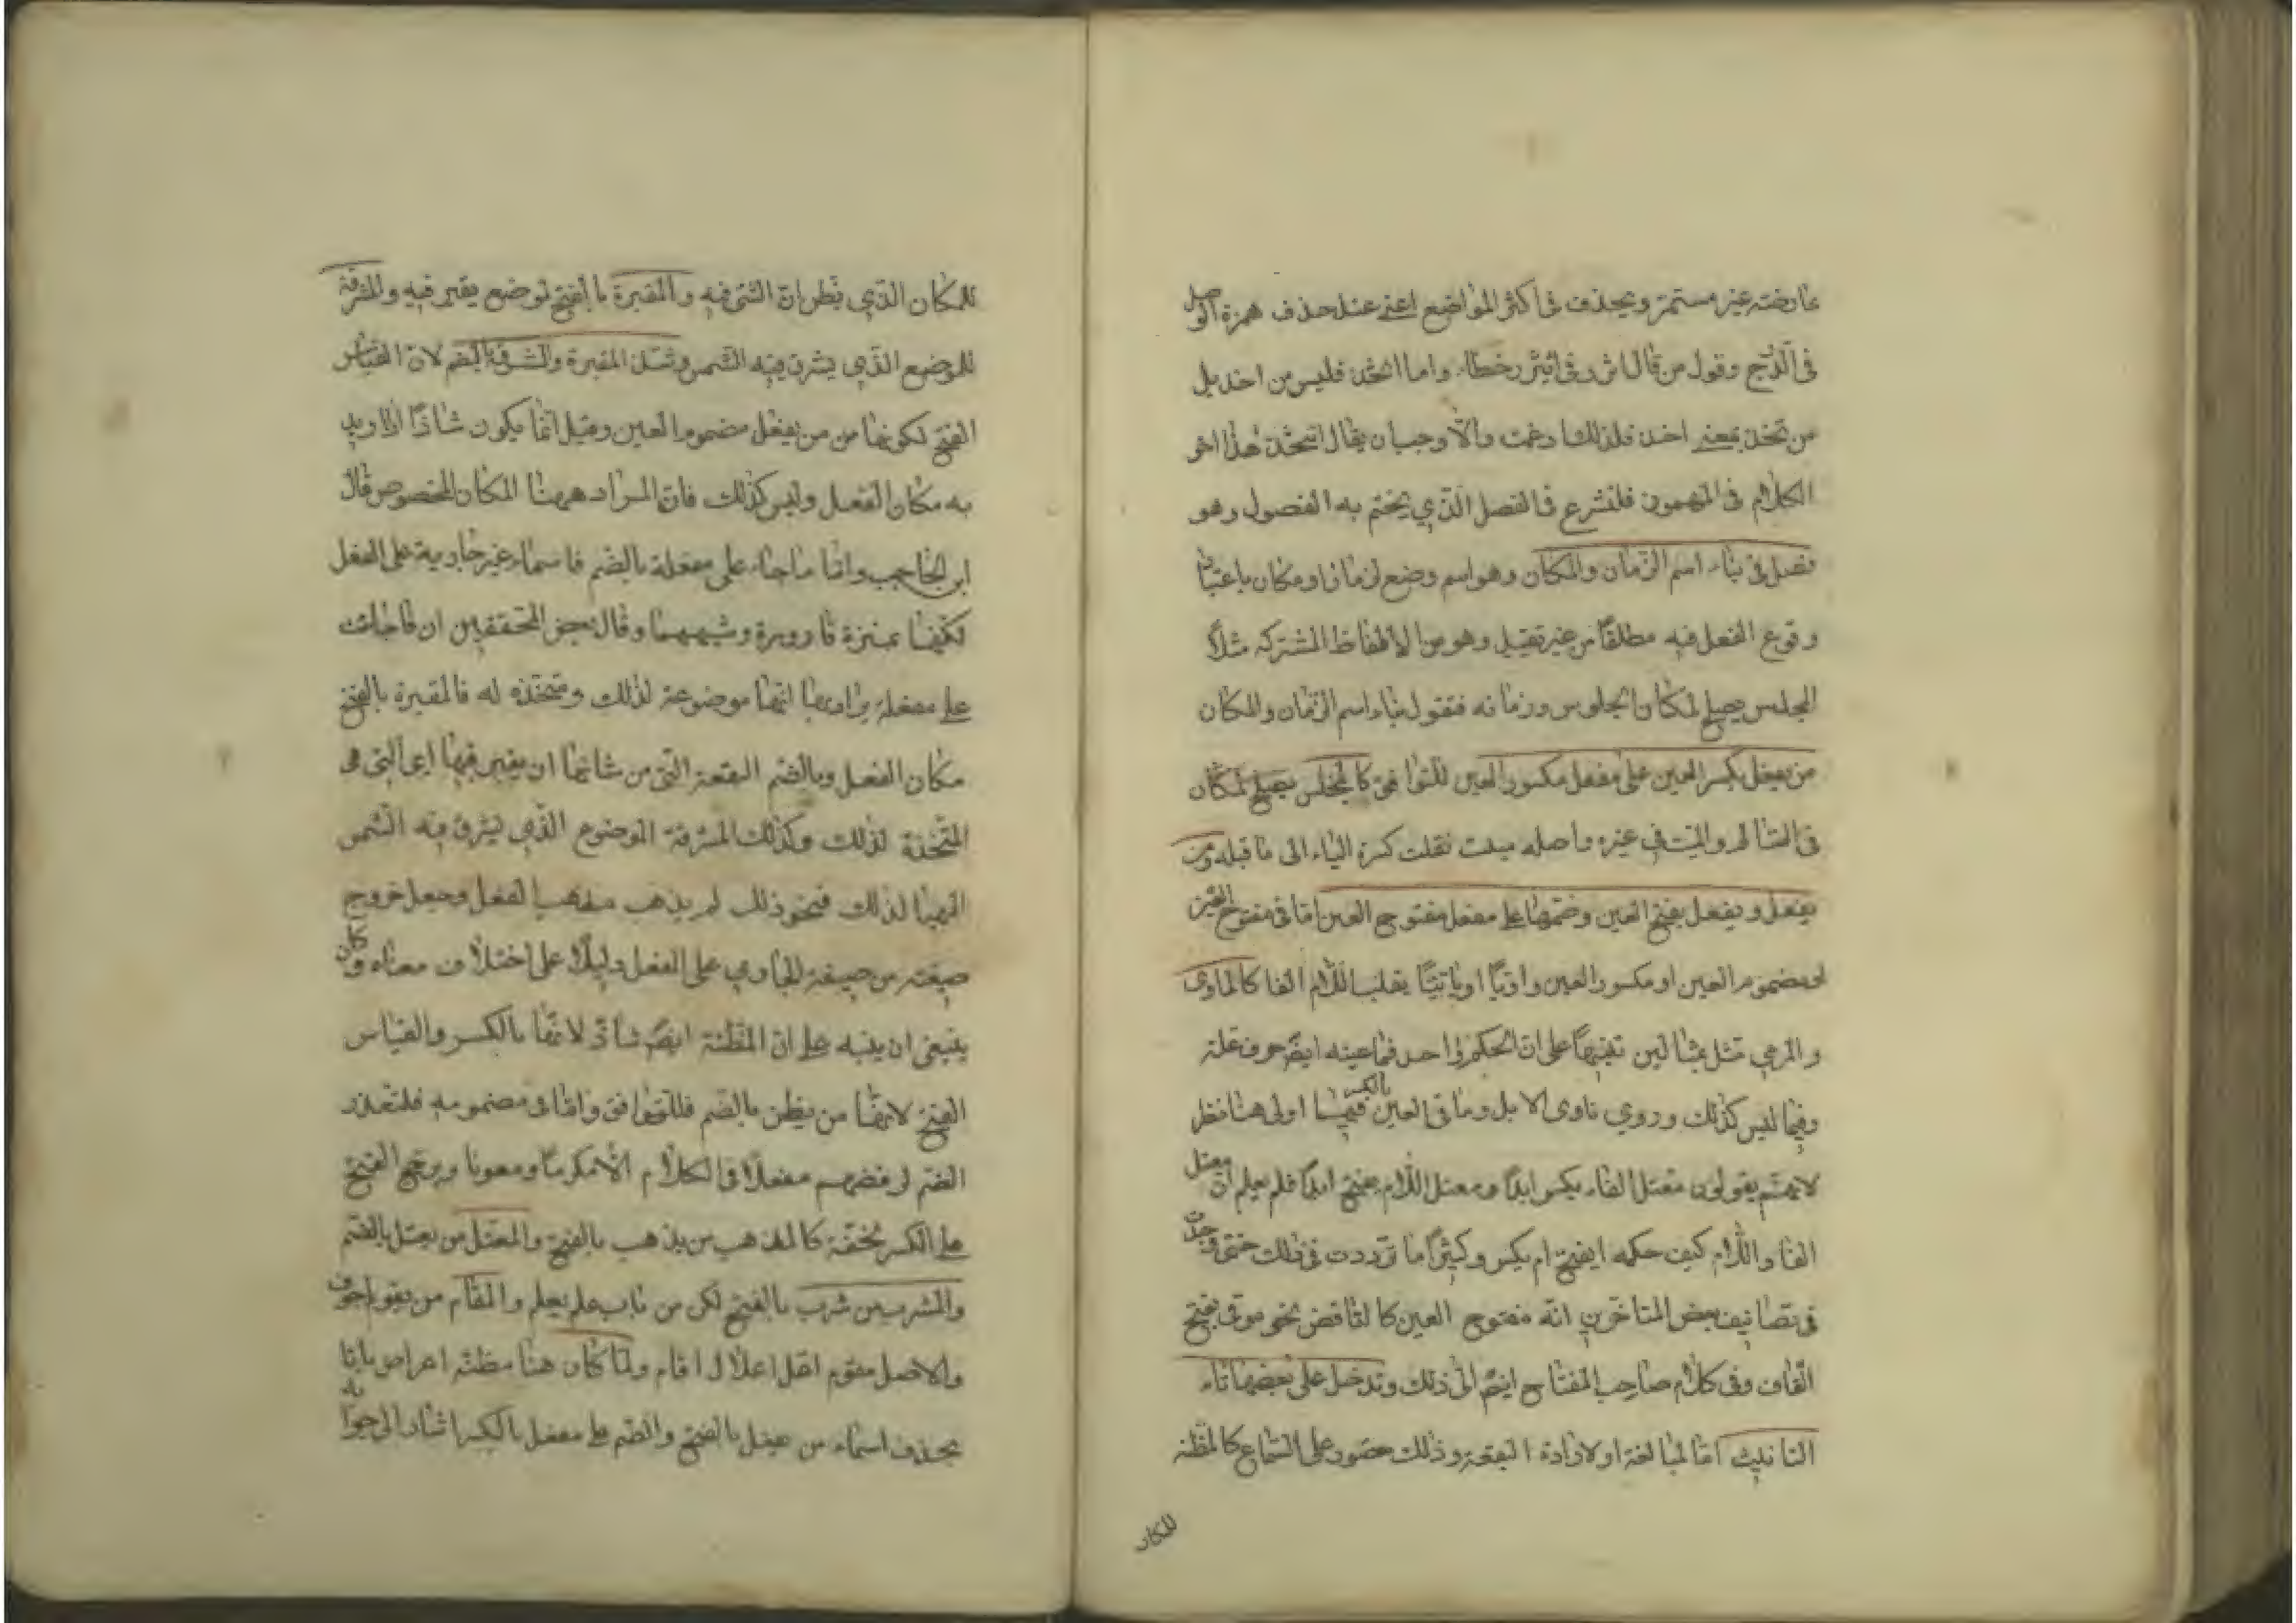 عارضته غير مستمرّ ويحذف فى اكثر المواضع اعنى عند حذف همزة الوصل
فى الدّرج وقول من قال اتزر فى ائتزر خطاء واما اتّخذ فليس من اخذ بل
من تخذ بمعنى اخذ فلذلك ادغمت والّا وجب ان يقال ايتخذ هذا اخر
الكلام فى المهموز فلنشرع فى الفصل الذي يختم به الفصول وهو
فصل فى بناء اسم الزمان والمكان وهو اسم وضع لزمان او مكان باعتبار
وقوع الفعل فيه مطلقًا من غير تقييد وهو من الالفاظ المشتركه مثلًا
المجلس يصلح لمكان الجلوس وزمانه فنقول بناء اسم الزمان والمكان
من يفعل بكسر العين على مفعل مكسور العين للتوافق كالمجلس يصلح لمكان
فى السالم والمبيت فى غيره واصله مبيت نقلت كسرة الياء الى ما قبله ومن
يفعل ويفعل بفتح العين وضمّها على مفعل مفتوح العين امّا فى مفتوح العين
او مضموم العين او مكسور العين واويًا او يائيًّا يقلب اللّام الفا كالماوى
والمرمي مثل بمثالين تنبيهًا على انّ الحكم واحد فيما عينه ايضًا حرف علة
وفيما ليس كذلك وروي ماوى الابل وماقى العين بالكسر فيهما اولى هنا نظر
لانهم يقولون معتل الفاء يكسر ابدًا ومعتل اللّام يفتح ابدًا فلم يعلم انّ معتل
الفا واللّام كيف حكمه ايفتح ام يكسر وكثيرًا ما تردّدت فى ذلك حتى وجدت
فى تصانيف بعض المتاخرين انّه مفتوح العين كالناقض نحو موقى بفتح
القاف وفى كلام صاحب المفتاح ايضًا الى ذلك وتدخل على بعضها تاء
التانيث امّا لمبالغة او لارادة البقعة وذلك مقصور على السماع كالمظنه
للمكان
للمكان الذي يظن انّ الشئ فيه والمقبرة بالفتح لموضع يقبر فيه والمشرقة
للموضع الذي يشرق فيه الشمس وشذ المقبرة والمشرقة بالضم لان القياس
الفتح لكونها من يفعل مضموم العين وقيل انّما يكون شاذًا اذا اريد
به مكان الفعل وليس كذلك فانّ المراد ههنا المكان المخصوص قال
ابن الحاجب وامّا ما جاء على مفعلة بالضّم فاسماء غير جارية على الفعل
لكنّها بمنزلة قارورة وشبهها وقال بعض المحققين ان ما جاءت
على مفعلة يراد بها انّها موضوعة لذلك ومتخذة له فالمقبرة بالفتح
مكان الفعل وبالضم البقعة التى من شانها ان يقبر فيها اى التى هى
المتّخذة لذلك وكذلك المشرقة الموضوع الذي يشرق فيه الشمس
المهيا لذلك فنحو ذلك لم يذهب مذهب الفعل وجعل خروج
صيغته من صيغة الجاري على الفعل دليلًا على اختلاف معناه وكان
ينبغى ان ينبه على انّ المظنة ايضًا شاذ لانّها بالكسر والقياس
الفتح لانّها من يظن بالضم فللتوافق وامّا فى مضمومه فلتعذر
الضم لرفضهم مفعلًا فى الكلام الّا مكرمًا ومعونا ويرجح الفتح
على الكسر لخفّته كالمذهب من يذهب بالفتح والمقتل من يقتل بالضم
والمشرب من شرب بالفتح لكن من باب علم يعلم والمقام من يقوم اجوف
والاصل مقوم اعل اعلال اقام ولمّا كان هنا مظنّه اعراض بانّا
نجد اسماء من يفعل بالفتح والضم على مفعل بالكسر اشار الى جوابه